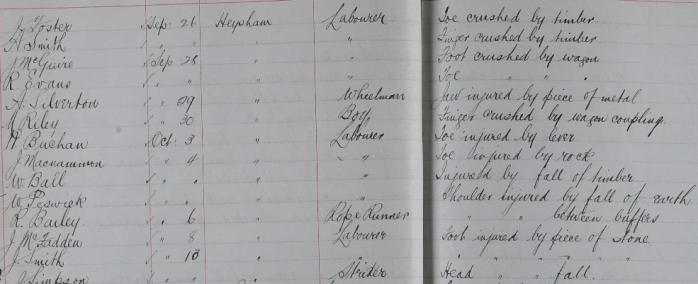 J. Foster Sep: 26 Heysham Labourer Toe crushed by timber.
H. Smith " " " " Finger crushed by timber
J. McGuire Sep 28 " " Foot crushed by wagon
R. Evans " " " " Toe " " "
H. Silverton " 29 " Wheelman Jaw injured by piece of metal
Riley " 30 " Boy Finger crushed by wagon coupling.
H. Buchan Oct: 3 " Labourer Toe injured by lever
J. Macnammon " 4 " " Toe injured by rock
W. Ball " " " " Injured by fall of timber
W. Peswick " " " " Shoulder injured by fall of earth
R. Bailey. " 6 " Rope Runner " " between buffers
J. McFadden " 8 " Labourer Foot injured by piece of stone
J. Smith " 10 " "
J. Simpson " " " Strider Head " " fall.